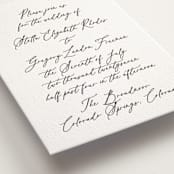 Please join us
for the wedding of
Stella Elizabeth
to
Gregory Landon Freeman
the Seventh of July
two thousand
half past four in the afternoon
The Broadmoor
Colorado Springs, Colorado